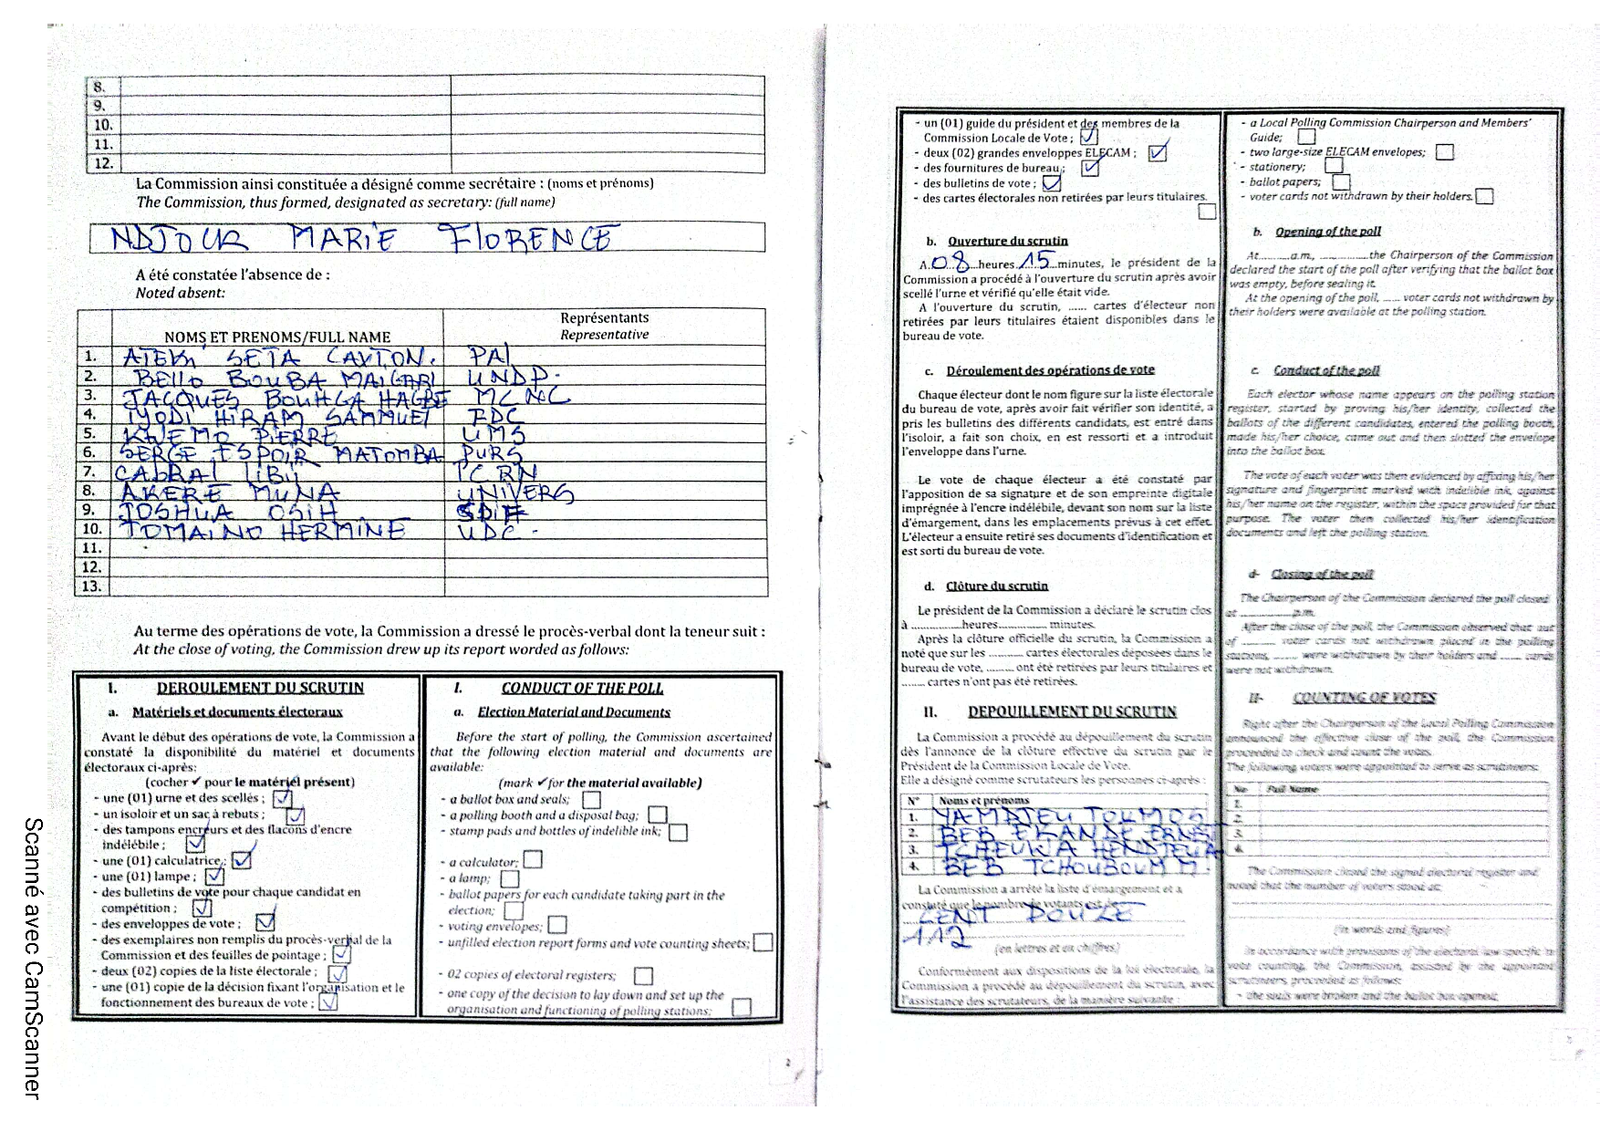 8.
9.
10.
11.
12.
La Commission ainsi constituée a désigné comme secrétaire : (noms et prénoms)
The Commission, thus formed, designated as secretary: (full name)
NDJOCK MARIE FLORENCE
A été constatée l'absence de :
Noted absent:
NOMS ET PRENOMS/FULL NAME
Représentants
Representative
1. ATEKI SETA CAXTON. PAL
2. BELLO BOUBA MAIGARI UNDP.
3. JACQUES BOUHGA HAGBE MCNC
4. IYODI HIRAM SAMMUEL FDC
5. KWEMO PIERRE UMS
6. SERGE ESPOIR MATOMBA PURS
7. CABRAL LIBII PCRN
8. AKERE MUNA UNIVERS
9. JOSHUA OSIH SDF
10. TOMAINO HERMINE UDC.
11.
12.
13.
Au terme des opérations de vote, la Commission a dressé le procès-verbal dont la teneur suit :
At the close of voting, the Commission drew up its report worded as follows:
I. DEROULEMENT DU SCRUTIN
a. Matériels et documents électoraux
Avant le début des opérations de vote, la Commission a
constaté la disponibilité du matériel et documents
électoraux ci-après:
(cocher ✓ pour le matériel présent)
- une (01) urne et des scellés ; ☑
- un isoloir et un sac à rebuts ; ☑
- des tampons encreurs et des flacons d'encre
indélébile ; ☑
- une (01) calculatrice ; ☑
- une (01) lampe ; ☑
- des bulletins de vote pour chaque candidat en
compétition ; ☑
- des enveloppes de vote ; ☑
- des exemplaires non remplis du procès-verbal de la
Commission et des feuilles de pointage ; ☑
- deux (02) copies de la liste électorale ; ☑
- une (01) copie de la décision fixant l'organisation et le
fonctionnement des bureaux de vote ; ☑
I. CONDUCT OF THE POLL
a. Election Material and Documents
Before the start of polling, the Commission ascertained
that the following election material and documents are
available:
(mark ✓ for the material available)
- a ballot box and seals; ☐
- a polling booth and a disposal bag; ☐
- stamp pads and bottles of indelible ink; ☐
- a calculator; ☐
- a lamp; ☐
- ballot papers for each candidate taking part in the
election; ☐
- voting envelopes; ☐
- unfilled election report forms and vote counting sheets; ☐
- 02 copies of electoral registers; ☐
- one copy of the decision to lay down and set up the
organisation and functioning of polling stations; ☐
2
- un (01) guide du président et des membres de la
Commission Locale de Vote ; ☑
- deux (02) grandes enveloppes ELECAM ; ☑
- des fournitures de bureau ; ☑
- des bulletins de vote ; ☑
- des cartes électorales non retirées par leurs titulaires. ☐
b. Ouverture du scrutin
A 08 heures 15 minutes, le président de la
Commission a procédé à l'ouverture du scrutin après avoir
scellé l'urne et vérifié qu'elle était vide.
A l'ouverture du scrutin, ...... cartes d'électeur non
retirées par leurs titulaires étaient disponibles dans le
bureau de vote.
c. Déroulement des opérations de vote
Chaque électeur dont le nom figure sur la liste électorale
du bureau de vote, après avoir fait vérifier son identité, a
pris les bulletins des différents candidats, est entré dans
l'isoloir, a fait son choix, en est ressorti et a introduit
l'enveloppe dans l'urne.
Le vote de chaque électeur a été constaté par
l'apposition de sa signature et de son empreinte digitale
imprégnée à l'encre indélébile, devant son nom sur la liste
d'émargement, dans les emplacements prévus à cet effet.
L'électeur a ensuite retiré ses documents d'identification et
est sorti du bureau de vote.
d. Clôture du scrutin
Le président de la Commission a déclaré le scrutin clos
à ............heures............ minutes.
Après la clôture officielle du scrutin, la Commission a
noté que sur les .......... cartes électorales déposées dans le
bureau de vote, ........ ont été retirées par leurs titulaires et
....... cartes n'ont pas été retirées.
II. DEPOUILLEMENT DU SCRUTIN
La Commission a procédé au dépouillement du scrutin
dès l'annonce de la clôture effective du scrutin par le
Président de la Commission Locale de Vote.
Elle a désigné comme scrutateurs les personnes ci-après :
N° Noms et prénoms
1. YAMDJEU TOKMOS
2. BEB EKANDE ERNES
3. TCHEUWA HENDJEUA
4. BEB TCHOUBOUM M.
La Commission a arrêté la liste d'émargement et a
constaté que le nombre de votants est de
CENT DOUZE
112
(en lettres et en chiffres)
Conformément aux dispositions de la loi électorale, la
Commission a procédé au dépouillement du scrutin, avec
l'assistance des scrutateurs, de la manière suivante :
- a Local Polling Commission Chairperson and Members'
Guide; ☐
- two large-size ELECAM envelopes; ☐
- stationery; ☐
- ballot papers; ☐
- voter cards not withdrawn by their holders. ☐
b. Opening of the poll
At..........a.m., ..............the Chairperson of the Commission
declared the start of the poll after verifying that the ballot box
was empty, before sealing it.
At the opening of the poll, ...... voter cards not withdrawn by
their holders were available at the polling station.
c. Conduct of the poll
Each elector whose name appears on the polling station
register, started by proving his/her identity, collected the
ballots of the different candidates, entered the polling booth,
made his/her choice, came out and then slotted the envelope
into the ballot box.
The vote of each voter was then evidenced by affixing his/her
signature and fingerprint marked with indelible ink, against
his/her name on the register, within the space provided for that
purpose. The voter then collected his/her identification
documents and left the polling station.
d- Closing of the poll
The Chairperson of the Commission declared the poll closed
at ..................p.m.
After the close of the poll, the Commission observed that out
of ........ voter cards not withdrawn placed in the polling
stations, ....... were withdrawn by their holders and ...... cards
were not withdrawn.
II- COUNTING OF VOTES
Right after the Chairperson of the Local Polling Commission
announced the effective close of the poll, the Commission
proceeded to check and count the votes.
The following voters were appointed to serve as scrutineers:
No Full Name
1.
2.
3.
4.
The Commission closed the signed electoral register and
noted that the number of voters stood at:
(in words and figures)
In accordance with provisions of the electoral law specific to
vote counting, the Commission, assisted by the appointed
scrutineers, proceeded as follows:
- the seals were broken and the ballot box opened;
Scanné avec CamScanner